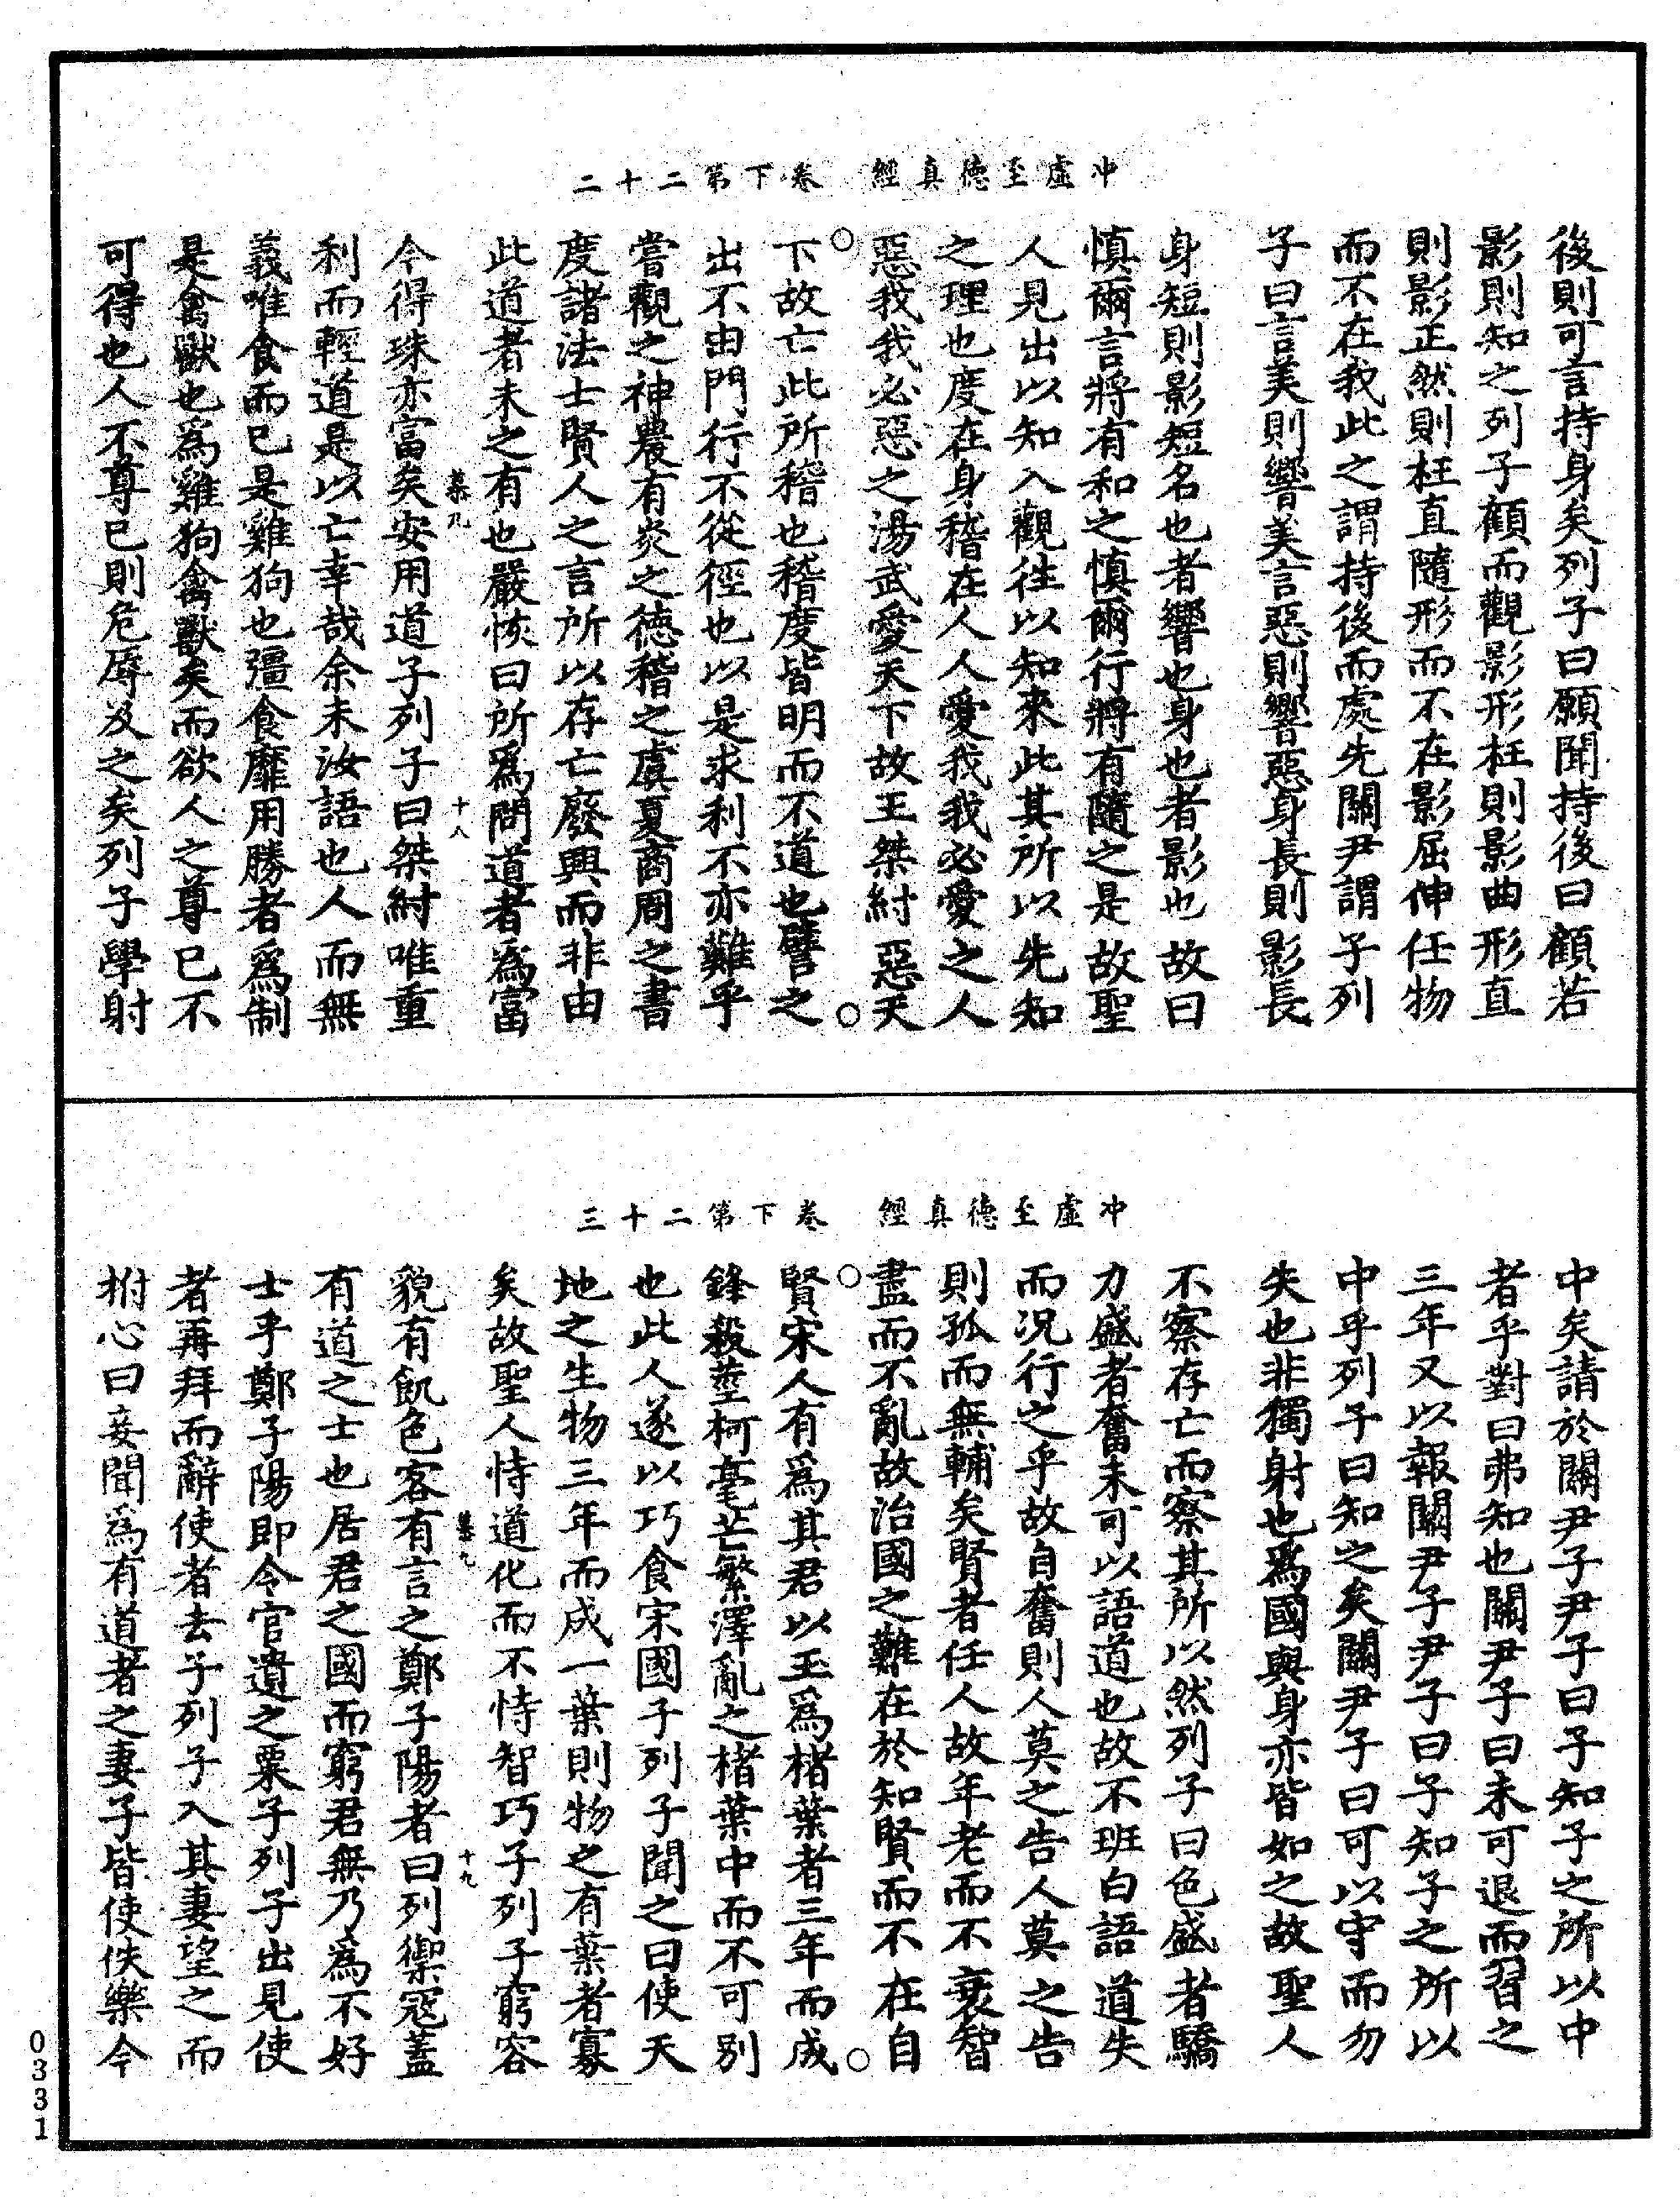 冲虛至德真經　卷下第二十二
後則可言持身矣列子曰願聞持後曰顧若
影則知之列子顧而觀影形枉則影曲形直
則影正然則枉直隨形而不在影屈伸任物
而不在我此之謂持後而處先關尹謂子列
子曰言美則響美言惡則響惡身長則影長
身短則影短名也者響也身也者影也故曰
慎爾言將有和之慎爾行將有隨之是故聖
人見出以知入觀往以知來此其所以先知
之理也度在身稽在人人愛我我必愛之人
惡我我必惡之湯武愛天下故王桀紂惡天
下故亡此所稽也稽度皆明而不道也譬之
出不由門行不從徑也以是求利不亦難乎
嘗觀之神農有炎之德稽之虞夏商周之書
度諸法士賢人之言所以存亡廢興而非由
此道者未之有也嚴恢曰所爲問道者為富
慕九　十八
今得珠亦富矣安用道子列子曰桀紂唯重
利而輕道是以亡幸哉余未汝語也人而無
義唯食而已是雞狗也彊食靡用勝者爲制
是禽獸也爲雞狗禽獸矣而欲人之尊已不
可得也人不尊已則危辱及之矣列子學射
冲虛至德真經　卷下第二十三
中矣請於關尹子尹子曰子知子之所以中
者乎對曰弗知也關尹子曰未可退而習之
三年又以報關尹子尹子曰子知子之所以
中乎列子曰知之矣關尹子曰可以守而勿
失也非獨射也爲國與身亦皆如之故聖人
不察存亡而察其所以然列子曰色盛者驕
力盛者奮未可以語道也故不班白語道失
而況行之乎故自奮則人莫之告人莫之告
則孤而無輔矣賢者任人故年老而不衰智
盡而不亂故治國之難在於知賢而不在自
賢宋人有爲其君以玉爲楮葉者三年而成
鋒殺莖柯毫芒繁澤亂之楮葉中而不可別
也此人遂以巧食宋國子列子聞之曰使天
地之生物三年而成一葉則物之有葉者寡
矣故聖人恃道化而不恃智巧子列子窮容
慕九　十九
貌有飢色客有言之鄭子陽者曰列禦寇蓋
有道之士也居君之國而窮君無乃爲不好
士乎鄭子陽即令官遺之粟子列子出見使
者再拜而辭使者去子列子入其妻望之而
拊心曰妾聞爲有道者之妻子皆使佚樂今
0331